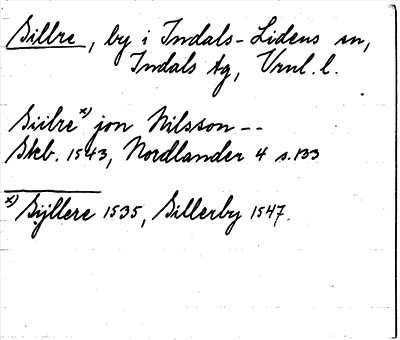 Sillre, by i Indals-Lidens sn,
Indals tg, Vrnl. l.
Siilre x) jon Nilsson --
Skb. 1543, Nordlander 4 s. 133
x) Sijllere 1535, Sillerby 1547.